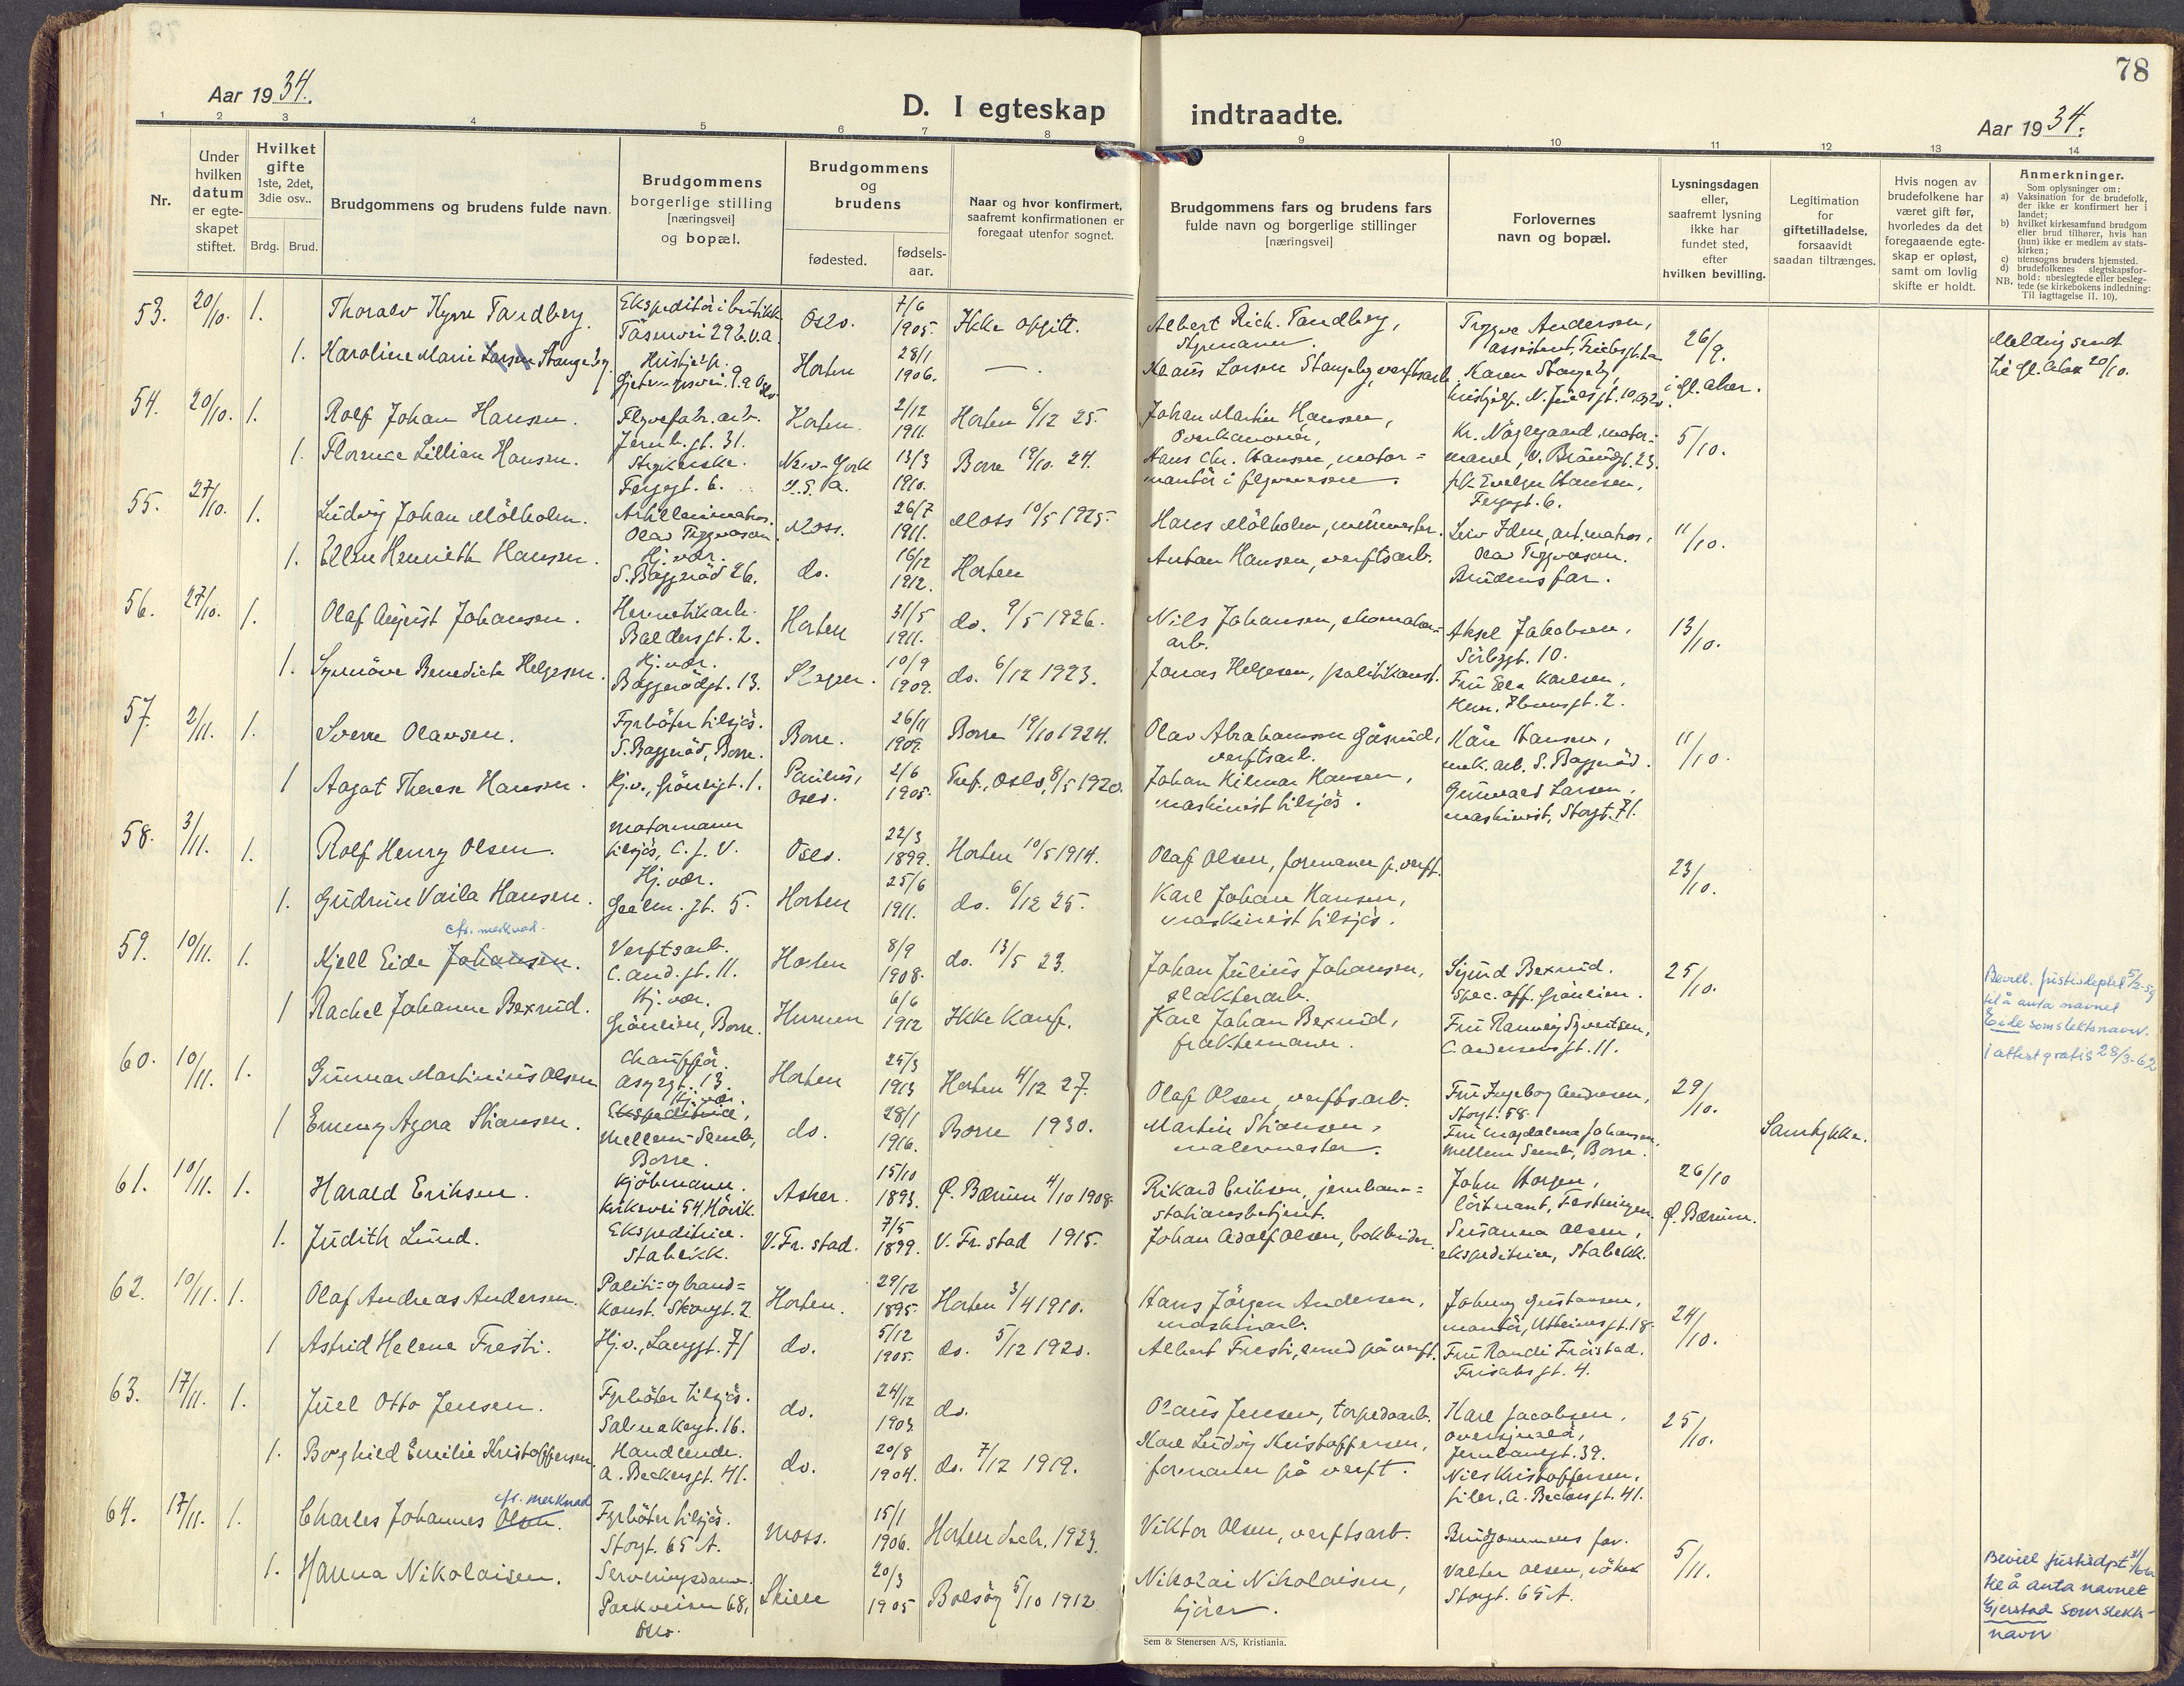 78
Aar 1934.
D. I egteskap indtraadte.
Aar 1934.
1 2 3 4 5 6 7 8 9 10 11 12 13 14
Nr.
Under hvilken datum er egte-skapet stiftet.
Hvilket gifte 1ste, 2det, 3die osv..
Brdg. Brud.
Brudgommens og brudens fulde navn.
Brudgommens borgerlige stilling [næringsvei] og bopæl.
Brudgommens og brudens
fødested.
fødsels-aar.
Naar og hvor konfirmert, saafremt konfirmationen er foregaat utenfor sognet.
Brudgommens fars og brudens fars fulde navn og borgerlige stillinger [næringsvei]
Forlovernes navn og bopæl.
Lysningsdagen eller, saafremt lysning ikke har fundet sted, efter hvilken bevilling.
Legitimation for giftetilladelse, forsaavidt saadan tiltrænges.
Hvis nogen av brudefolkene har været gift før, hvorledes da det foregaaende egte-skap er opløst, samt om lovlig skifte er holdt.
Anmerkninger.
Som oplysninger om:
a) Vaksination for de brudefolk, der ikke er konfirmert her i landet;
b) hvilket kirkesamfund brudgom eller brud tilhører, hvis han (hun) ikke er medlem av stats-kirken;
c) utensogns bruders hjemsted.
d) brudefolkenes slegtskapsfor-hold: ubeslegtede eller besleg-tede (se kirkebokens indledning:
NB. Til iagttagelse II. 10).
53. 20/10. 1. Thoralv Kyrre Tandberg. Ekspeditör i butikk Oslo. 7/6 1905. Ikke opgitt. Albert Rich. Tandberg, Trygve Andersen, 26/9. Melding sendt
Tåsenvei 29 b. v.a. assistent,
1. Karoline Marie Larsen Stangeby. Hushjelp. Horten 28/1 1906. — Klaus Larsen Stangeby, verftsarb. Karen Stangeby, i Gl. Aker. til Gl. Aker 20/10.
54. 20/10. 1. Rolf Johan Hansen. Flyvefabr. arb. Horten. 2/12 1911. Horten 6/12 25. Johan Martin Hansen, Kr. Nöglegaard, motor- 5/10.
Jernb. gt. 31.
1. Florence Lillian Hansen. Strykerske. New-York 13/3 1910. Borre 19/10. 24. Hans Chr. Hansen, motor= mann, V. Braarudgt. 23.
Fergegt. 6. U.S.A. montör i flyvevesen. frk Evelyn Hansen,
Fergegt. 6.
55. 27/10. 1. Ludvig Johan Mölholm. Artillerimatros. Moss. 26/7 1911. Moss 10/5 1925. Hans Mölholm, Leiv Iden, art. matros, 11/10.
Olav Tryggvason Olav Tryggvason.
1. Ellen Henrieth Hansen. Hj. vær. do. 16/12 1912. Horten Anton Hansen, verftsarb. Brudens far.
S. Baggeröd 26.
56. 27/10. 1. Olaf August Johansen. Hermetikarb. Horten 31/5 1911. do. 9/5 1926. Nils Johansen, skomaker= Aksel Jakobsen, 13/10.
Baldersgt. 2. arb. Sörbygt. 10.
1. Synnöve Benedicte Helgesen. Hj. vær. Skien. 10/9 1909. do. 6/12 1923. Jonas Helgesen, politikonst. Fru Ella Karlsen,
Baggerödgt. 13. Henr. Ibsensgt. 2.
57. 2/11. 1. Sverre Olavsen. Fyrböter tilsjös. Borre. 26/11 1909. Borre 19/10 1924. Olav Abrahamsen Gåsrud, Kåre Hansen, 11/10.
S. Baggeröd, Borre. verftsarb. mek. arb. S. Baggeröd.
1 Aagot Therese Hansen. Hj.v., Grönligt. 1. Paulus, Oslo. 2/6 1905. Tref., Oslo, 8/5 1920. Johan Hilmar Hansen, Gunvald Larsen,
maskinist tilsjös. maskinist, Storgt. 71.
58. 3/11. 1. Rolf Henry Olsen. Motormann Oslo. 22/3 1899. Horten 10/5 1914. Olaf Olsen, formann p. verft. 23/10.
tilsjös, C. J. V.
1. Gudrun Vaila Hansen. Hj. vær. Horten 25/6 1911. do. 6/12 25. Karl Johan Hansen,
Geelm. gt. 5. maskinist tilsjös.
cfr. merknad.
59. 10/11. 1. Kjell Eide Johansen. Verftsarb. Horten 8/9 1908. do. 13/5 23. Johan Julius Johansen, Sigurd Bexrud. 25/10. Bevill. justisdeptet 5/2-59
C. And. gt. 11. slakterarb. spec. off. Grönlien. til å anta navnet
1 Rachel Johanne Bexrud. Hj. vær. Hurum 6/6 1912 Ikke konf. Karl Johan Bexrud, Fru Rannveig Syvertsen, Eide som slektsnavn.
Grönlien, Borre. fraktemann. C. Andersensgt. 11. 1 attest gratis 28/3-62
60. 10/11. 1. Gunnar Martinius Olsen Chaufför. Horten 25/3 1913 Horten 4/12 27. Olaf Olsen, verftsarb. Fru Ingeborg Andresen, 29/10.
Asgegt. 13. Storgt. 58.
1 Emmy Agora Stiansen. Hj. vær. Ekspeditrice, do. 28/1 1916. Borre 1930. Martin Stiansen, Fru Magdalena Johansen, Samtykke.
Mellem-Semb, Borre. malermester. Mellem Semb, Borre.
61. 10/11. 1. Harald Eriksen. Kjöbmann. Asker. 15/10 1893. Ø. Bærum 4/10 1908. Rikard Eriksen, jernbane= John Horgen, 26/10
Kirkevei 54, Hövik. stationsbetjent. löitnant, Festningen. Ø. Bærum.
1. Judith Lund. Ekspeditrice. V. Fr. stad. 7/5 1899. V. Fr. stad 1915. Johan Adolf Olsen, bokbinder. Susanna Olsen,
Stabekk. ekspeditrice, Stabekk.
62. 10/11. 1. Olaf Andreas Andersen. Politi- og brand= Horten. 29/12 1895. Horten 3/4 1910. Hans Jörgen Andersen, Johnny Gustavsen, 24/10.
konst. Skovgt. 2 maskinarb. montör,
1 Astrid Helene Fresti. Hj.v., Langgt. 71 do. 5/12 1905. do. 5/12 1920. Albert Fresti, smed på verft. Fru Randi Fröistad.
63. 17/11. 1. Juel Otto Jensen. Fyrböter tilsjös. do. 24/12 1903. do. Olaus Jensen, torpedoarb. Karl Jacobsen, 25/10.
Jernbanegt. 39.
1. Borghild Emilie Kristoffersen Handlende. do. 20/8 1904. do. 7/12 1919. Karl Ludvig Kristoffersen, Nils Kristoffersen,
A. Beckersgt. 41. formann på verft. filer, A. Beckersgt. 41.
cfr. merknad
64. 17/11. 1. Charles Johannes Olsen. Fyrböter tilsjös. Moss. 15/1 1906. Horten 1923. Viktor Olsen, verftsarb. Brudgommens far. 5/11. Bevill justisdpt
Storgt. 65 A. til å anta navnet
1. Hanna Nikolaisen. Serveringsdame. Skille 20/3 1905 Bolsöy 5/10 1912 Nikolai Nikolaisen, Valter Olsen, Gjerstad som slekts-
Parkveien 68, Oslo. kjörer. Storgt. 65 A. navn
Sem & Stenersen A/S, Kristiania.